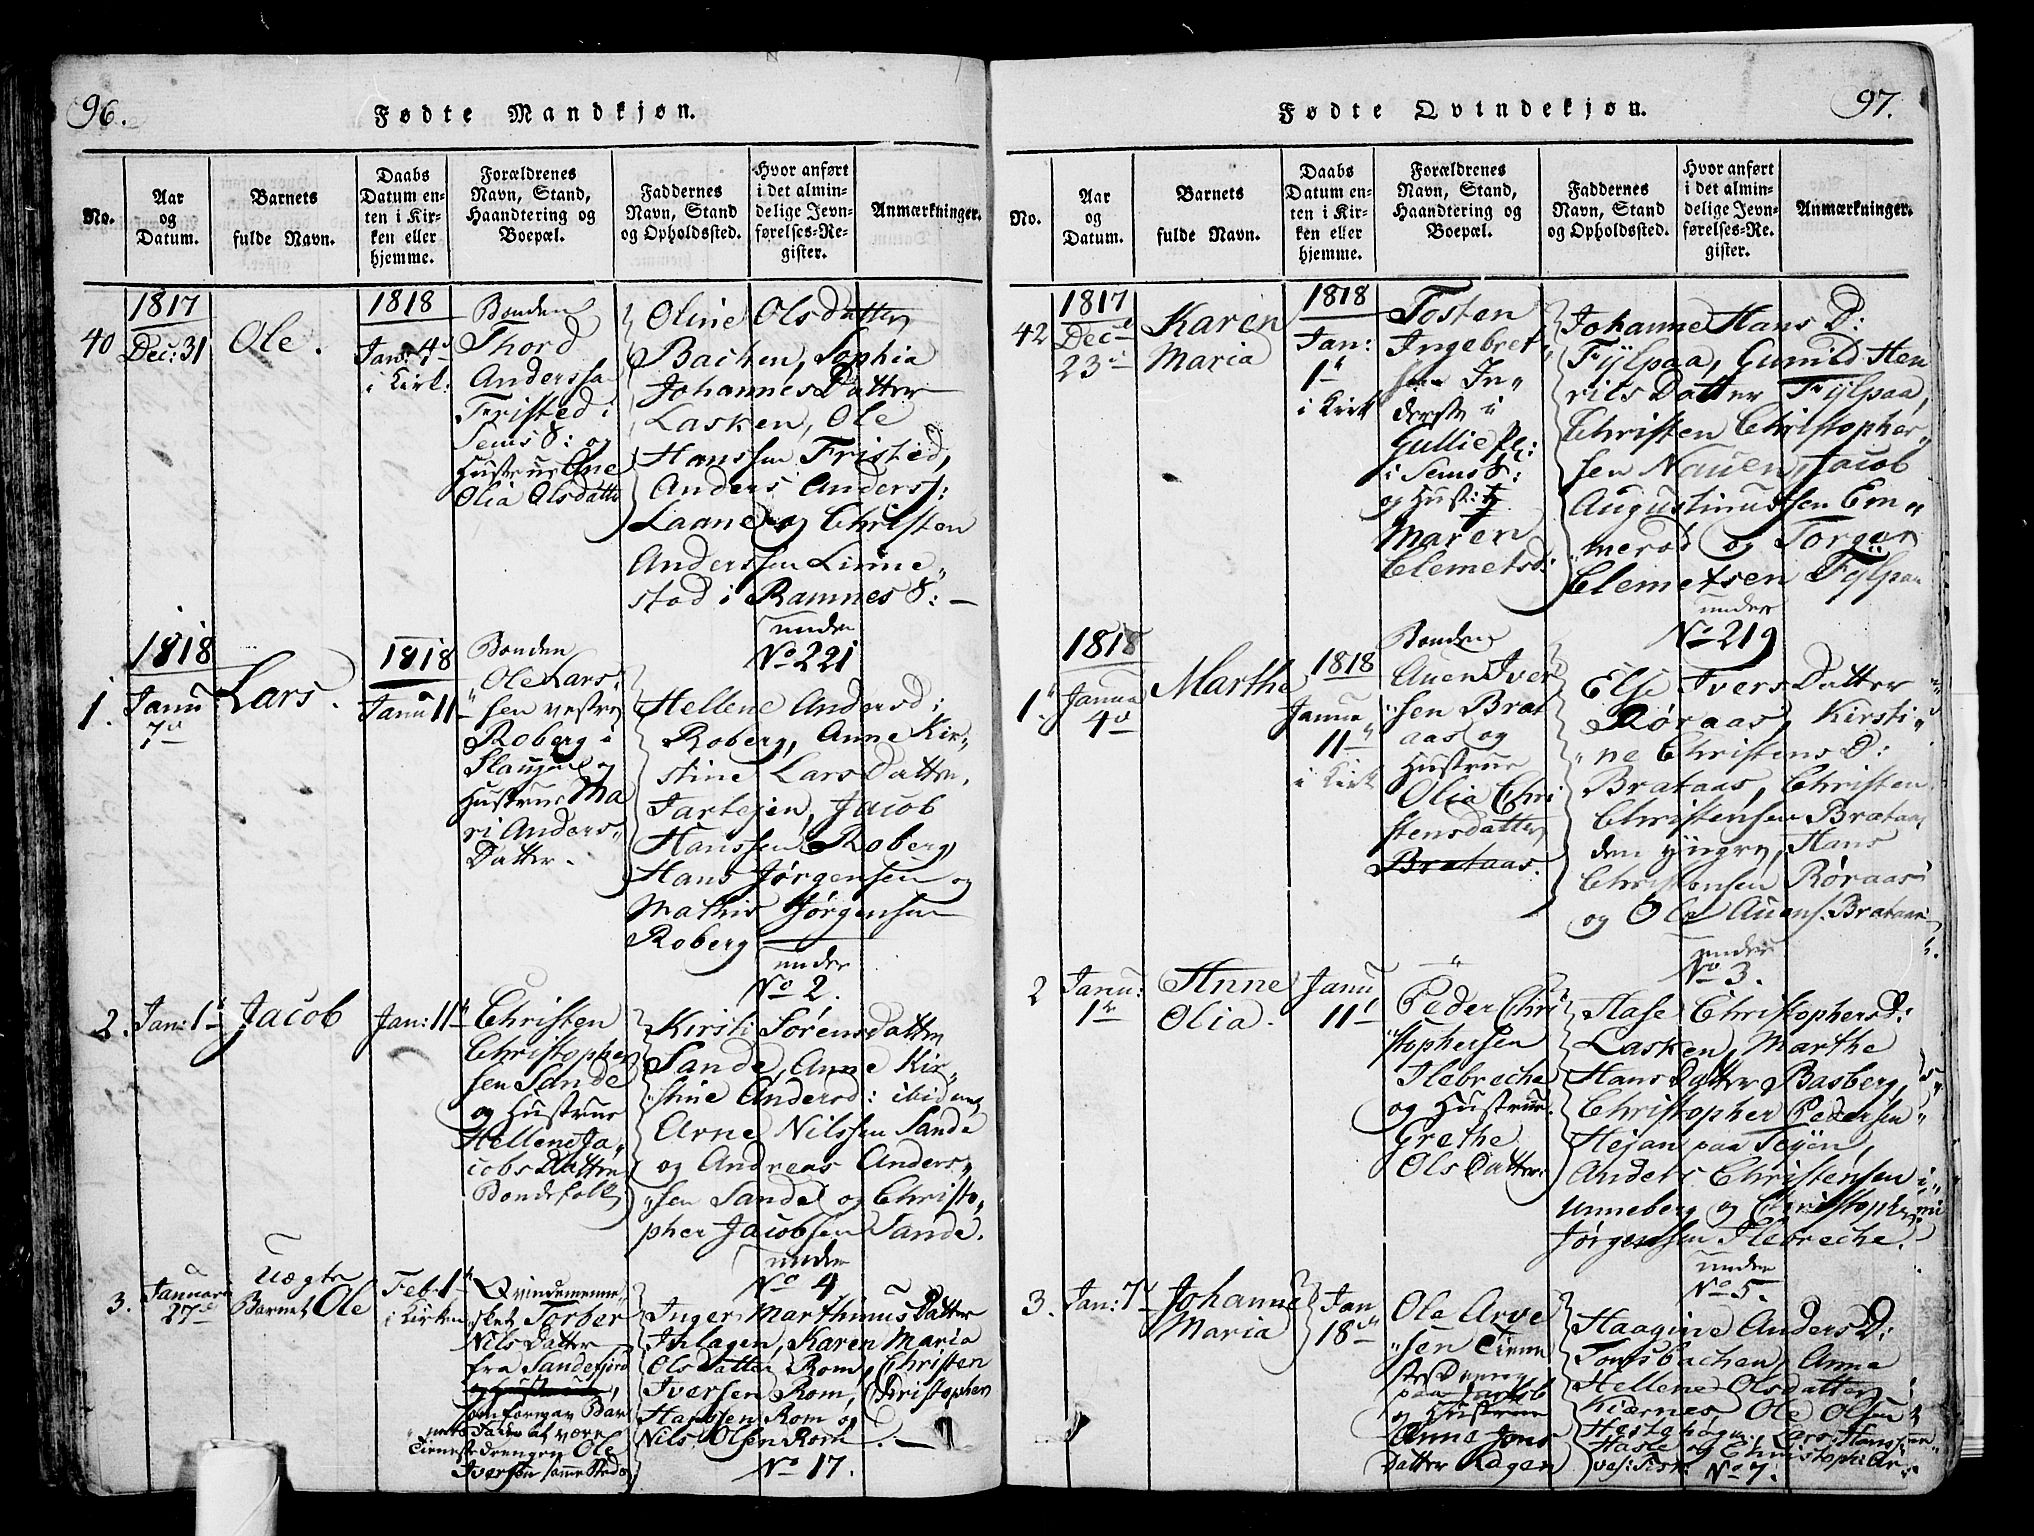 96.
Fødte Mandkjøn.
No.
Aar
og
Datum.
Barnets
fulde Navn.
Daabs
Datum en-
ten i Kir-
ken eller
hjemme.
Forældrenes
Navn, Stand,
Haandtering og
Boepæl.
Faddernes
Navn, Stand
og Opholdssted.
Hvor anført
i det almin-
delige Jevn-
førelses-Re-
gister.
Anmærkninger.
40
1817
Dec: 31
Ole.
1818
Jan: 4
i Kirk:
Bonden
Thord
Anderssøn
Fristed i
Sems S: og
Hustrue Ane
Olia Olsdatter
Oline Olsdatter
Bachen, Sophia
Johannes Datter
Lasken, Ole
Hanssen Fristed,
Anders Anderss:
Laane og Christen
Anderssen Linne
stad i Ramnes S: —
under
No 221
1.
1818
Janu
7
Lars.
1818
Janu 11
Bonden
Ole Lars
sen vestre
Roberg i
Slaugen og
Hustrue Ma
ri Anders
Datter.
Hellene Andersd:
Roberg, Anne Kir
stine Lars Datter,
Jartejen, Jacob
Hanssen Roberg,
Hans Jørgensen og
Mathis Jørgensen
Roberg
under
No 2.
2.
Jan: 1
Jacob
Jan: 11
Christen
Christopher
sen Sande
og Hustrue
Hellene Ja
cobs Datter
Bondefolk
Kirsti Sørens Datter
Sande, Anne Kir
stine Andersd: ibidem,
Arne Nilssen Sande
og Andreas Anders
sen Sande og Christo
pher Jacobsen Sande.
under
No 4
3.
Januari
27
Uægte
Barnet Ole
Feb: 1
i Kirken
Qvindemenne
sket Torber
Nils Datter
fra Sandefiord
og Hustrue,
som forgav Bar
nets Fader at være
Tieneste drengen Ole
Iversen samme Sted
Inger Marthinus Datter
Ihlagen, Karen Maria
Ols Datter Rom, Christen
Iversen Rom, Christopher
Hanssen Rom og
Nils Olsen Rom.
No 17.
97.
Fødte Qvindekjøn.
No.
Aar
og
Datum.
Barnets
fulde Navn.
Daabs
Datum en-
ten i Kir-
ken eller
hjemme.
Forældrenes
Navn, Stand,
Haandtering og
Boepæl.
Faddernes
Navn, Stand
og Opholdssted.
Hvor anført
i det almin-
delige Jevn-
førelses-Re-
gister.
Anmærkninger.
42
1817
Dec
23
Karen
Maria
1818
Jan:
1
i Kirk
Tosten
Ingebret
sen In
derste i
Gullie Pl:
i Sems S:
og Hust:
Maren
Clemetsd:
Johanne Hans D:
Fylpaa, Gunild Hen
rils Datter Fylpaa,
Christen Christopher
sen Nauen, Jacob
Augustinussen Em
merod og Torger
Clemetsen Fylpaa
under
No 219
1
1818
Janua
4
Marthe
1818
Janua
11
i Kirk
Bonden
Auen Iver
sen Brat
aas og
Hustrue
Olia Chri
stensdatter
Brataas.
Else Ivers Datter
Røraas, Kirsti
ne Christens D:
Brataas, Christen
Christensen Brataas
den yngre, Hans
Christensen Røraas
og Ole Auens: Brataas
under
No 3.
2
Janu:
1
Anne
Olia.
Janu
11
Peder Chri
stophersen
Ilebreche
og Hustrue
Grethe
Ols Datter
Aase Christophersd:
Lasken, Marthe
Hans Datter Basberg,
Christopher Pedersen
Hejan paa Teyen,
Anders Christensen
Unneberg og Christopher
Jørgenssen Ilebreche.
under
No 5.
3.
Jan: 7
Johanne
Maria
Jan
18
Ole Arve
sen Tiene
ste Dreng
paa Jarlsb
og Hustrue
Anne Jens
Datter Ragen
Haagine Anders D:
Tonsbachen, Anna
Hellene Olsdatter
Kiærnes, Ole Olsen
Hestehøgen, Lars Hanssen
Hasle og Christoph: Ar
ves: Fisk:
No 7.